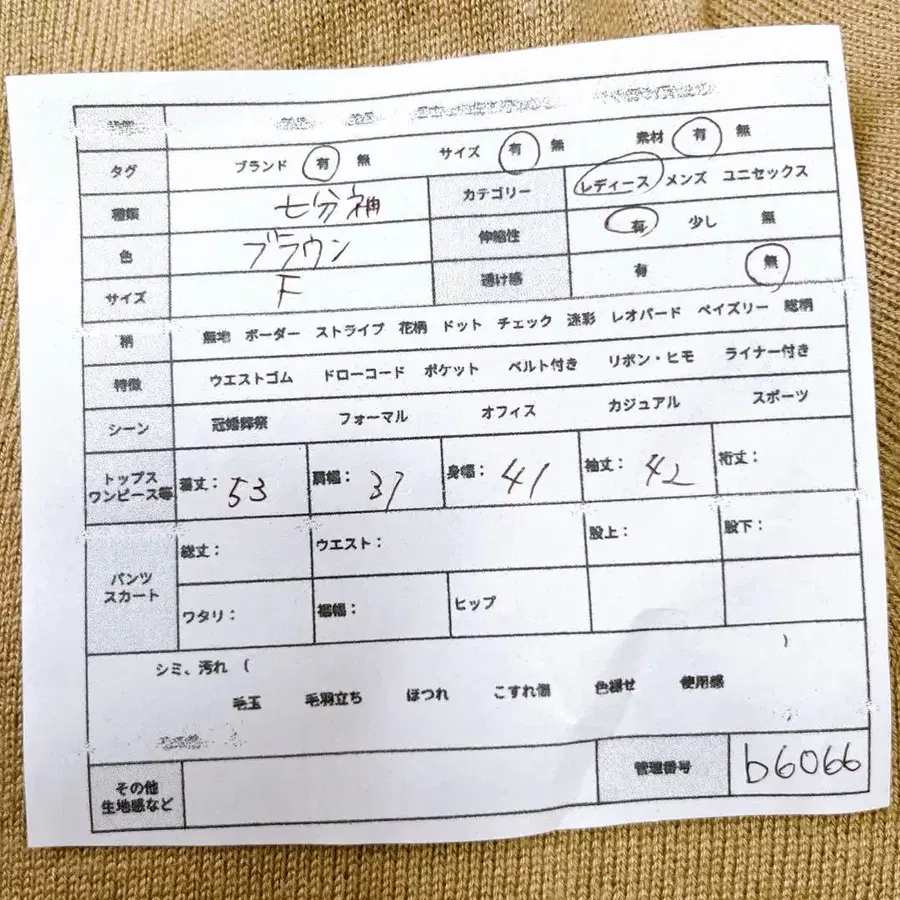 タグ ブランド 有 無 サイズ 有 無 素材 有 無
種類 七分袖 カテゴリー レディース メンズ ユニセックス
色 ブラウン 伸縮性 有 少し 無
サイズ F 透け感 有 無
柄 無地 ボーダー ストライプ 花柄 ドット チェック 迷彩 レオパード ペイズリー 総柄
特徴 ウエストゴム ドローコード ポケット ベルト付き リボン・ヒモ ライナー付き
シーン 冠婚葬祭 フォーマル オフィス カジュアル スポーツ
トップス
ワンピース等
着丈: 53 肩幅: 37 身幅: 41 袖丈: 42 裄丈:
パンツ
スカート
総丈: ウエスト: 股上: 股下:
ワタリ: 裾幅: ヒップ
シミ、汚れ ( )
毛玉 毛羽立ち ほつれ こすれ傷 色褪せ 使用感
その他
生地感など
管理番号 b6066